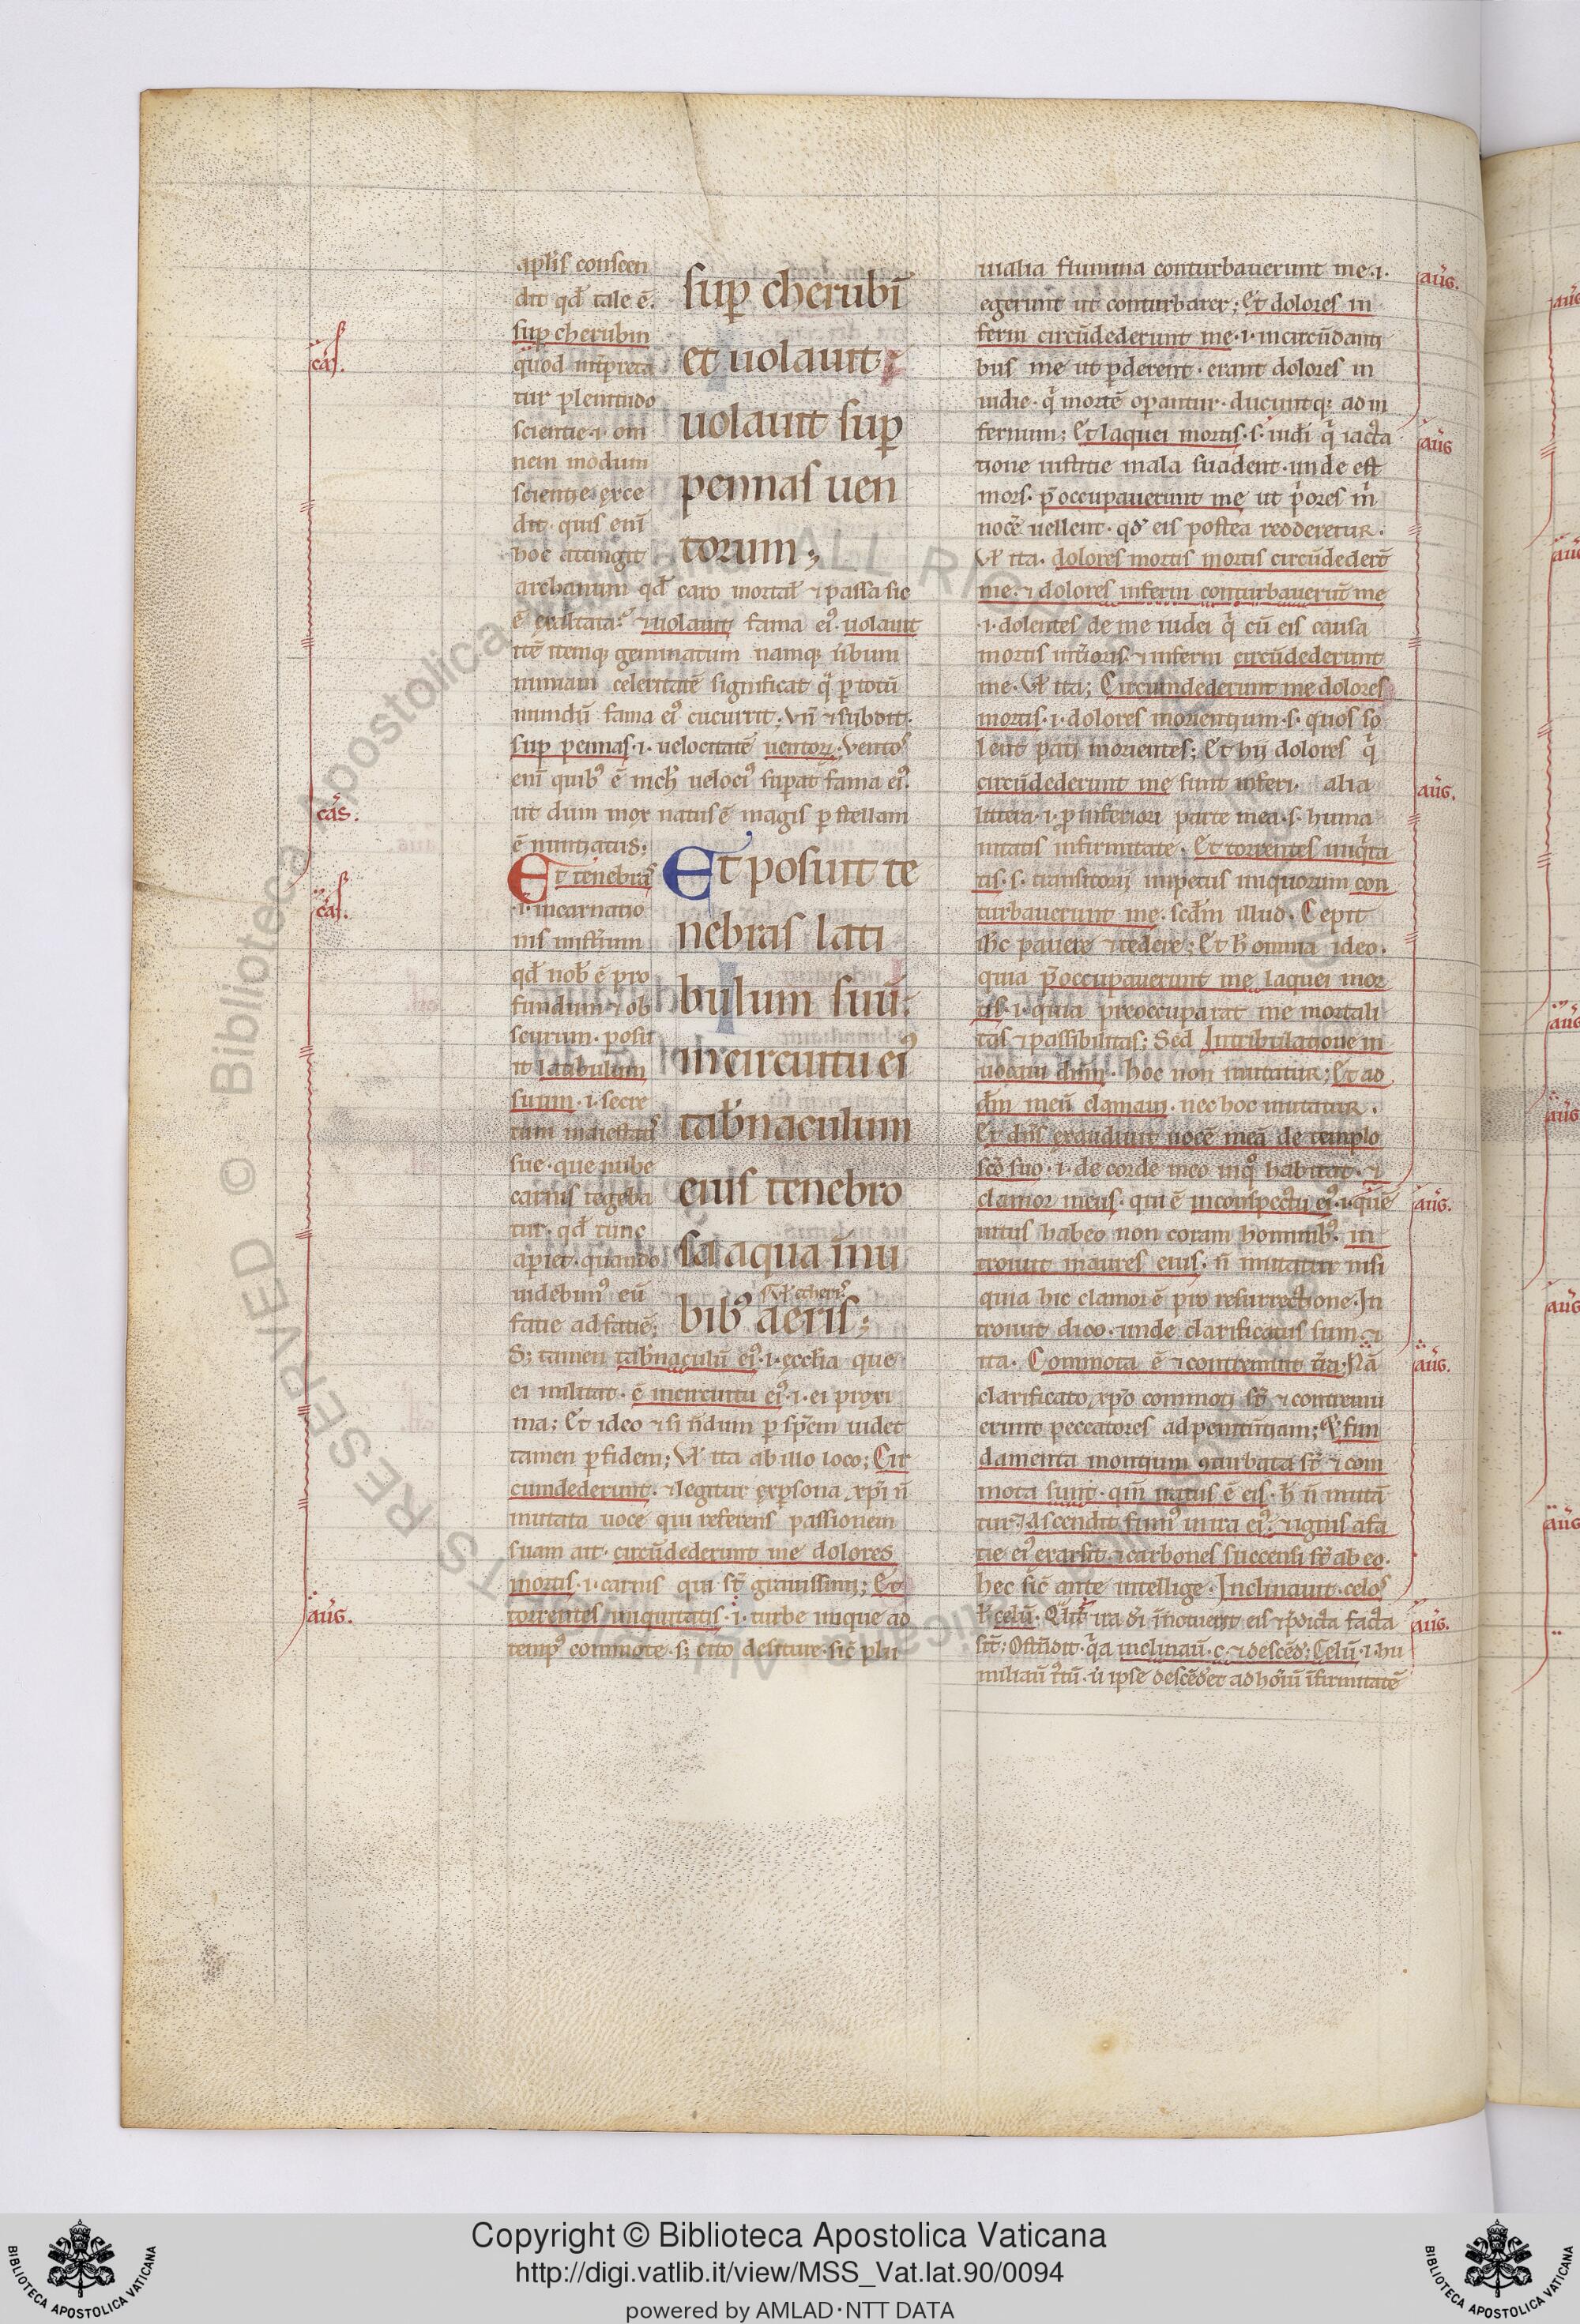 sup̱ cherubī
et uolauit
uolauit sup̱
pennas uen
torum;
Et posuit te
nebras lati
bulum suū:
in circuitu ei᷒
tab̄naculum
eius tenebro
sa aqua ī nu
bib᷒ aeris;
apl̄is conscen
dit qd̄ tale ē.
sup̱ cherubin
quod int̄p̱reta
tur plenitudo
scientie·i·om
nem modum
scientie exce
dit· quis enī
hoc attingit
archanum qd̄ caro mortal̄ ⁊ passa sic
ē exaltata? ⁊ uolauit fama ei᷒· uolauit
itē itemq; geminatum namq; ūbum
nimiam celeritatē significat q̄ p̱ totū
mundū fama ei᷒ cucurrit· Vn̄ ⁊ subdit·
sup̱ pennas·i· uelocitatē uentoꝝ· Vento᷒
enī quib᷒ ē nich̄ ueloci᷒ sup̱at fama ei᷒·
ut dum mox natus ē magis p̱ stellam
ē nuntiatus;
Et tenebras
·i· incarnatio
nis mist̄ium
qd̄ nob̄ ē pro
fundum ⁊ ob
scurum· posu
it latibulum
suum·i·secre
tum maiestat᷒
sue· que nube
carnis tegeba
tur· qd̄ tunc
ap̱iet· quando
uidebim᷒ eū
facie ad faciē;
S; tamen tab̄naculū ei᷒·i·eccl̄ia que
ei militat· ē in circuitu ei᷒·i·ei proxi
ma; Et ideo ⁊ si n̄dum p̱ sp̄em uidet
tamen p̱ fidem; Vl̄ ita ab illo loco; Cir
cumdederunt· ⁊ legitur ex p̱sona xp̄i n̄
mutata uoce qui referens passionem
suam ait· circūdederunt me dolores
mortis·i·carnis qui st̄ grauissimi; Et
torrentes iniquitatis·i·turbe inique ad
temp᷒ commote· s; cito desiture· sic̄ plu
uialia flumina conturbauerunt me·i·
egerunt ut conturbarer; Et dolores in
ferni circūdederunt me·i·in circūdanti
bus me ut p̱derent· erant dolores in
uidie· q̄ mortē op̱antur· ducuntq; ad in
fernum; Et laquei mortis·s·iudei q̄ iacta
tione iustitie mala suadent· unde est
mors· p̄occupauerunt me ut p̄ores m̄
nocē uellent· qd̄ eis postea redderetur·
Vl̄ ita· dolores mortis mortis circūdedert̄
me· ⁊ dolores inferni conturbauerūt me
·i·dolentes de me iudei q̄ cū eis causa
mortis int̄ioris ⁊ inferni circūdederunt
me· Vl̄ ita; Circumdederunt me dolores
mortis·i·dolores morientium·s·quos so
lent pati morientes; Et hii dolores q̄
circūdederunt me sunt inferi· alia
littera·i·p̱ inferiori parte mea·s·huma
nitatis infirmitate· Et torrentes iniq̄ta
tis·s·transitorii impetus iniquorum con
turbauerunt me· scd̄m illud· Cepit
ih̄c pauere ⁊ tedere; Et h̄ omnia ideo·
quia p̄occupauerunt me laquei mor
tis·i·quia preoccuparat me mortali
tas ⁊ passibilitas; Sed In tribulatione in
uocaui dn̄m· hoc non mutatur; Et ad
dm̄ meū clamaui· nec hoc mutatur·
Et dn̄s exaudiuit uocē meā de templo
scō suo·i·de corde meo in q᷒ habitat· ⁊
clamor meus· qui ē in conspectu ei᷒·i·quē
intus habeo non coram hominib᷒· in
troiuit in aures eius· n̄ mutatur nisi
quia hic clamor ē pro resurrectione· In
troiuit dico· unde clarificatus sum· ⁊
ita· Commota ē ⁊ contremuit t̄ra· Nā
clarificato xp̄o commoti st̄ ⁊ contremu
erunt peccatores ad penitentiam; Et fun
damenta montium ꝯturbata st̄ ⁊ com
mota sunt· qm̄ iratus ē eis· h̄ n̄ muta
tur; Ascendit fum᷒ in ira ei᷒· ⁊ ignis a fa
cie ei᷒ exarsit· ⁊ carbones succensi st̄ ab eo·
hec sic̄ ante intellige· Inclinauit· celos
cas.
cas.
cas.
aug.
aug.
aug.
aug.
aug.
aug.
aug.
Copyright © Biblioteca Apostolica Vaticana
http://digi.vatlib.it/view/MSS_Vat.lat.90/0094
powered by AMLAD·NTT DATA
BIBLIOTECA APOSTOLICA VATICANA
BIBLIOTECA APOSTOLICA VATICANA